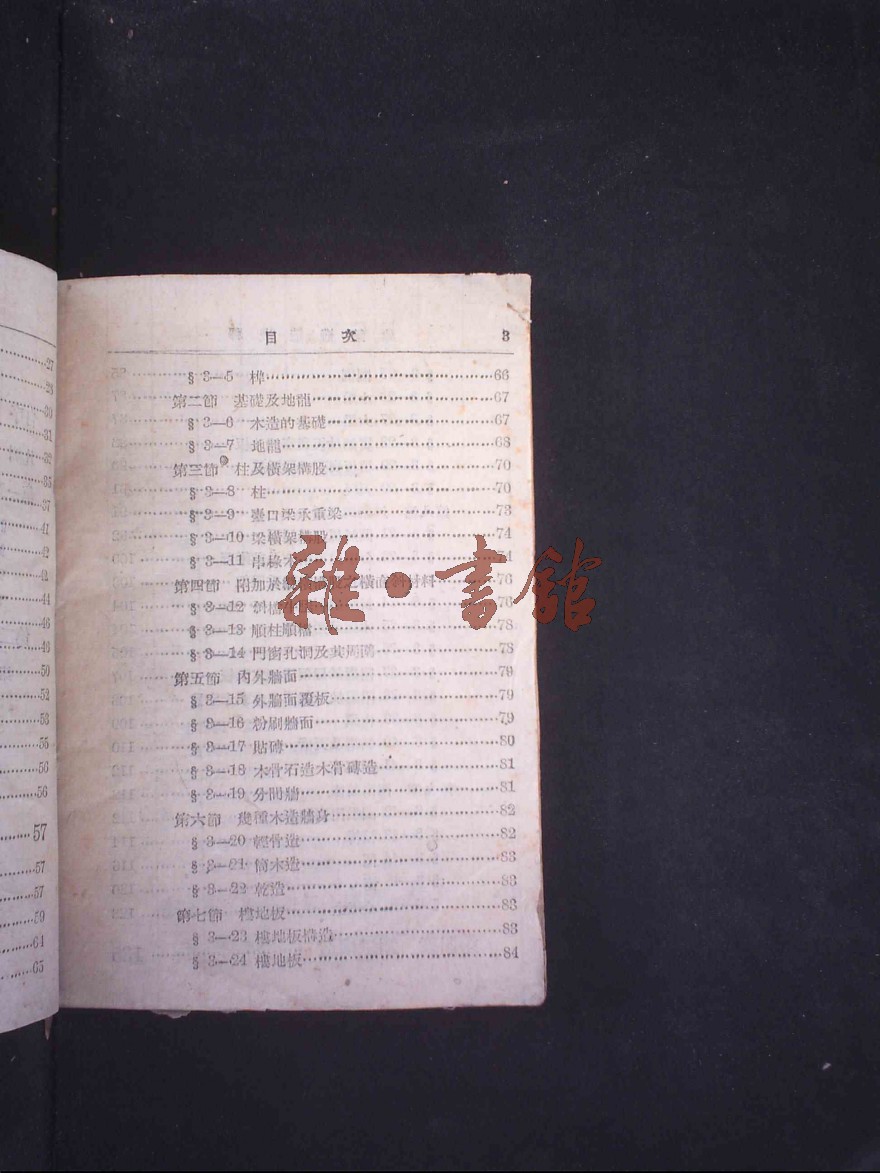 27
28
30
31
32
35
37
41
42
42
44
46
46
50
52
53
55
56
56
57
57
57
59
61
65
目次 3
§ 3—5 榫 66
第二節 基礎及地龍 67
§ 3—6 木造的基礎 67
§ 3—7 地龍 68
第三節 柱及橫架構股 70
§ 3—8 柱 70
§ 3—9 臺口梁承重梁 73
§ 3—10 梁橫架構股 74
§ 3—11 串椽木
第四節 附加於 材料 76
§ 3—12 76
§ 3—13 順柱順檔 78
§ 3—14 門窗孔洞及其周圍 78
第五節 內外牆面 79
§ 3—15 外牆面覆板 79
§ 3—16 粉刷牆面 79
§ 3—17 貼磚 80
§ 3—18 木骨石造木骨磚造 81
§ 3—19 分間牆 81
第六節 幾種木造牆身 82
§ 3—20 輕骨造 82
§ 3—21 筒木造 83
§ 3—22 乾造 83
第七節 樓地板 83
§ 3—23 樓地板構造 83
§ 3—24 樓地板 84
雜·書館